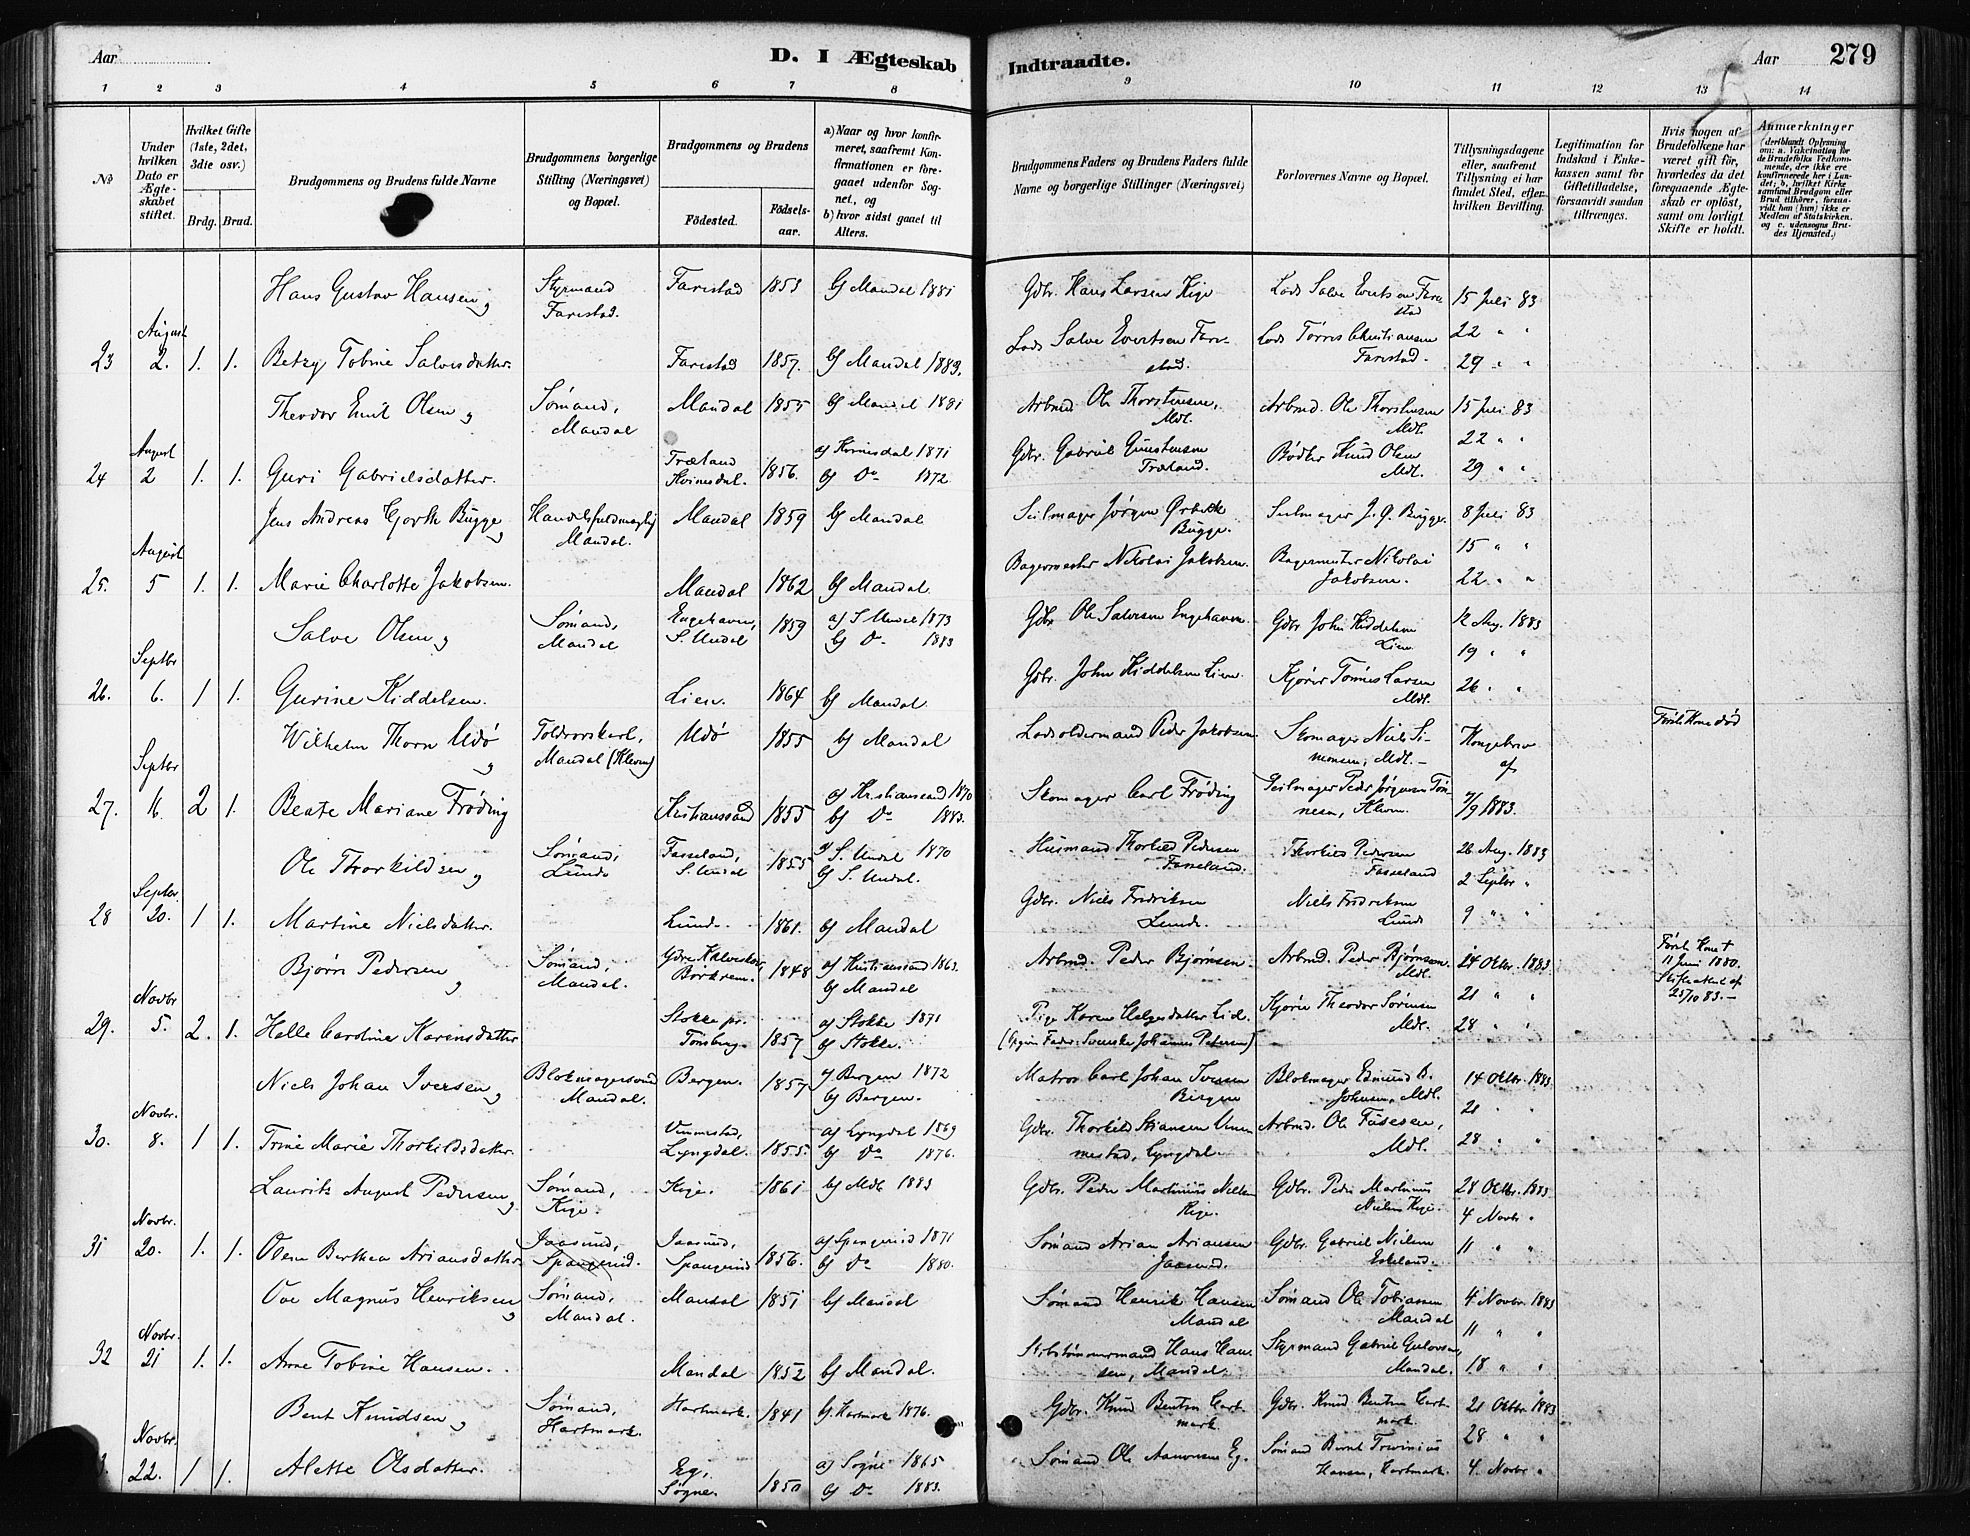 Aar
D. I Ægteskab
Indtraadte.
Aar
279
1 2 3 4 5 6 7 8 9 10 11 12 13 14
No
Under hvilken Dato er Ægte-skabet stiftet.
Hvilket Gifte (1ste, 2det, 3die osv.)
Brdg. Brud.
Brudgommens og Brudens fulde Navne
Brudgommens borgerlige Stilling (Næringsvei) og Bopæl.
Brudgommens og Brudens
Fødested.
Fødsels-aar.
a) Naar og hvor konfir-meret, saafremt Kon-firmationen er fore-gaaet udenfor Sog-net, og
b) hvor sidst gaaet til Alters.
Brudgommens Faders og Brudens Faders fulde Navne og borgerlige Stillinger (Næringsvei)
Forlovernes Navne og Bopæl.
Tillysningsdagene eller, saafremt Tillysning ei har fundet Sted, efter hvilken Bevilling.
Legitimation for Indskud i Enke-kassen samt for Giftetilladelse, forsaavidt saadan tiltrænges.
Hvis nogen af Brudefolkene har været gift før, hvorledes da det foregaaende Ægte-skab er opløst, samt om lovligt Skifte er holdt.
Anmærkninger
(deriblandt Oplysning om: a. Vakcination for de Brudefolks Vedkom-mende, der ikke ere konfirmerede her i Lan-det; b. hvilket Kirke samfund Brudgom eller Brud tilhører, forsaa-vidt han (hun) ikke er Medlem af Statskirken. og c. udensogns Bru-des Hjemsted.)
Hans Gustav Hansen og Styrmand Farestad. Farestad 1853 b) Mandal 1881 Gdbr. Hans Larsen Kige Lods Salve Evertsen Fare stad 15 Juli 83
23 August 2. 1. 1. Betzy Tobine Salvesdatter. Farestad 1857. b) Mandal 1883. Lods Salve Evertsen Fare-stad. Lods Tørres Christiansen Farestad. 22 " " 29 " "
Theodor Emil Olsen og Sømand, Mandal Mandal 1855 b) Mandal 1881 Arbmd Ole Thorstensen, Mdl. Arbmd. Ole Thorstensen Mdl. 15 Juli 83
24 August 2 1. 1. Guri Gabrielsdatter. Træland Kvinesdal. 1856. a) Kvinesdal 1871 b) Do 1872 Gdbr. Gabriel Træland. Bødker Knud Olsen Mdl. 22 " " 29 " "
Jens Andreas Gjorth Bugge og Handelsfuldmægtig Mandal. Mandal 1859 b) Mandal Seilmager Jørgen Ørbeck Bugge. Seilmager J. Ø. Bugge. 8 Juli 83
25. August 5 1. 1. Marie Charlotte Jakobsen. Mandal 1862 b) Mandal. Bagermester Nikolai Jakobsen. Bagermester Nikolai Jakobsen. 15 " " 22 " "
Salve Olsen og Sømand, Mandal Engehaven, S. Undal 1859 a) S. Undal 1873 b) Do 1883 Gdbr Ole Salvesen Engehaven. Gdbr John Kiddelsen Lien. 12 Aug. 1883
26. Septbr 6. 1 1. Gurine Kiddelsen. Lien. 1864 b) Mandal. Gdbr. John Kiddelsen Lien. Kjører Tønnes Larsen Mdl. 19 " " 26 " "
Wilhelm Thorn Udø og Toldrorskarl, Mandal (Kleven) Udø 1855 b) Mandal Lodsoldermand Peder Jakobsen Skomager Niels Si-monsen, Mdl.- Kongebrev af Første Kone død
27. Septbr 11. 2 1. Beate Mariane Frøding Kristianssand 1855 a) Kristianssand 1870 b) Do 1883. Skomager Carl Frøding Seilmager Peder Jørgensen Tøn-nesen, Kleven. 7/9 1883.
Ole Thorkildsen og Sømand, Lunde Fasseland, S. Undal 1855 a) S. Undal 1870 b) S. Undal. Husmand Thorkild Pedersen Fasseland. Thorkild Pedersen Fasseland 26 Aug. 1883
28 Septbr. 20. 1 1. Martine Nielsdatter. Lunde. 1861. b) Mandal Gdbr. Niels Fredriksen Lunde. Niels Fredriksen Lunde 2 Septbr " 9 " "
Bjørn Pedersen og Sømand, Mandal. 1848 a) Kristianssand 1863. b) Mandal Arbmd. Peder Bjørnsen. Arbmd. Peder Bjørnsen Mdl. 14 Oktbr. 1883 Første Kone † 11 Juni 1880. Skifteattest af 25/10 83.-
29. Novbr 5. 2. 1. Helle Caroline Karensdatter Stokke pr. Tønsberg. 1857 a) Stokke 1871 b) Stokke. Pige Karen Helgesdatter Lid. (Opgiven Fader: Svenske Johannes Petersen) Kjører Theodor Sørensen Mdl. 21 " " 28 " "
Niels Johan Iversen og Blokmagersvend Mandal. Bergen. 1857 a) Bergen 1872 b) Bergen. Matros Carl Johan Iversen Bergen Blokmager Edmund B. Johnsen, Mdl. 14 Oktbr. 1883
30. Novbr. 8. 1 1. Trine Marie Thorkildsdatter. Vemmestad, Lyngdal. 1855. a) Lyngdal 1869 b) Do 1876. Gdbr. Thorkild Stiansen Vem mestad, Lyngdal. Arbmd. Ole Mdl. 21 " 28 " "
Laurits August Pedersen og Sømand, Kige. Kige. 1861 b) Mdl 1883 Gdbr. Peder Martinius Nielsen Kige. Gdbr. Peder Martinius Nielsen Kige. 28 Oktbr. 1883
31 Novbr. 20. 1. 1. Olene Berthea Ariansdatter Jaasund, Spangereid. Jaasund, Spangereid 1856. a) Spangereid 1871 b) Do 1880. Sømand Arian Ariansen Jaasund. Gdbr. Gabriel Nielsen Eskeland. 4 Novbr. " 11 " "
Ove Magnus Henriksen og Sømand, Mandal. Mandal 1851 b) Mandal Sømand Henrik Hansen Mandal Sømand Ole Tobiassen Mandal 4 Novbr. 1883
32 Novbr. 21 1. 1. Anne Tobine Hansen. Mandal 1852 b) Mandal. Skibstømmermand Hans Han-sen, Mandal. Styrmand Gabriel Mandal. 11 " " 18 " "
Bent Knudsen og Sømand, Hartmark. Hartmark. 1841 b) Hartmark 1876. Gdbr. Knud Bentsen Hart-mark Gdbr. Knud Bentsen Hart-mark. 21 Oktbr. 1883
Novbr. 22. 1 1. Alette Olsdatter. Eg, Søgne. 1850 a) Søgne 1865 b) Do 1883. Sømand Ole Aanonsen Eg. Sømand Bernt Hansen, Hartmark. 28 " " 4. Novbr "